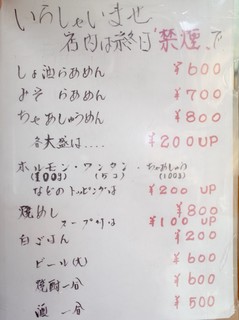 いらしゃいませ
店内は終日"禁煙"で
しょ油らあめん ¥600
みそ らあめん ¥700
ちゃあしゅうめん ¥800
各大盛は.... ¥200UP
ホルモン・ワンタン・ちゃあしゅう
(100g) (5コ) (100g)
などのトッピングは ¥200 UP
焼めし ¥800
スープ付は ¥100 UP
白ごはん ¥200
ビール(大) ¥600
焼酎一合 ¥600
酒 一合 ¥500